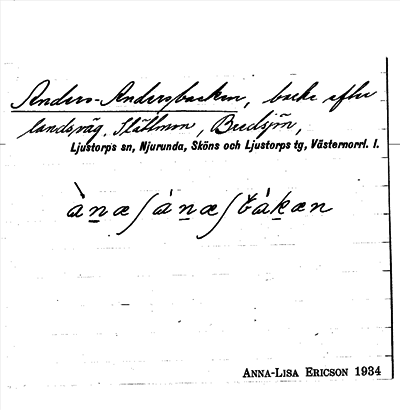 Anders-Andersbacken, backe efter
landsväg. Slättmon, Bredsjön,
Ljustorps sn, Njurunda, Sköns och Ljustorps tg, Västernorrl. l.
ànæʃánæʃbàkæn
ANNA-LISA ERICSON 1934